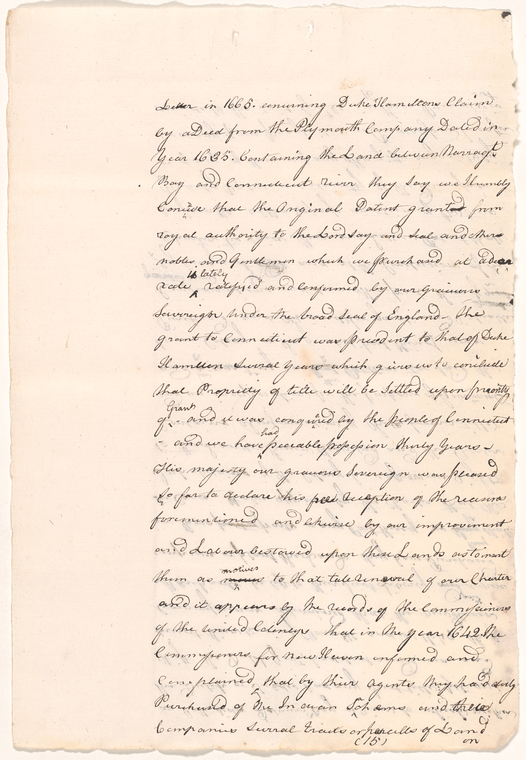 Letter in 1665. concerning Duke Hamiltons Claim
by a Deed from the Plymouth Company Dated in
Year 1635. Containing the Land between Narragt
Bay and Connecticut river they say we Humbly
Concive that the Original Patent granted from
royal authority to the Lord say and seal and other
nobles and Gentlemen which we purchased at a dear
rate is lately ratifyed and Confirmed by our Gracious
Sovereign under the broad seal of England. the
grant to Connecticut was precedent to that of Duke
Hamilton Surral Years which gives us to conclude
that Propriety of title will be Settled upon
of Grant - and it was conquired by the people of Connecticut
- and we have had peceable posession thirty Years -
His majesty our gracious Sovereign was pleased
So far to declare his reception of the reasons
forementioned and likwise by our improvement
and Labour bestowed upon these Lands as to
them as motives to that late renewal of our Charter
and it appears by the records of the Commissioners
of the United Coleneys that in the Year 1642 the
Commissioners for New Haven informed and
Complained that by thier Agents they had duly
Purchased of the Indian Sachems and there
Companies Surral Tracts or parcells of Land
(15) on